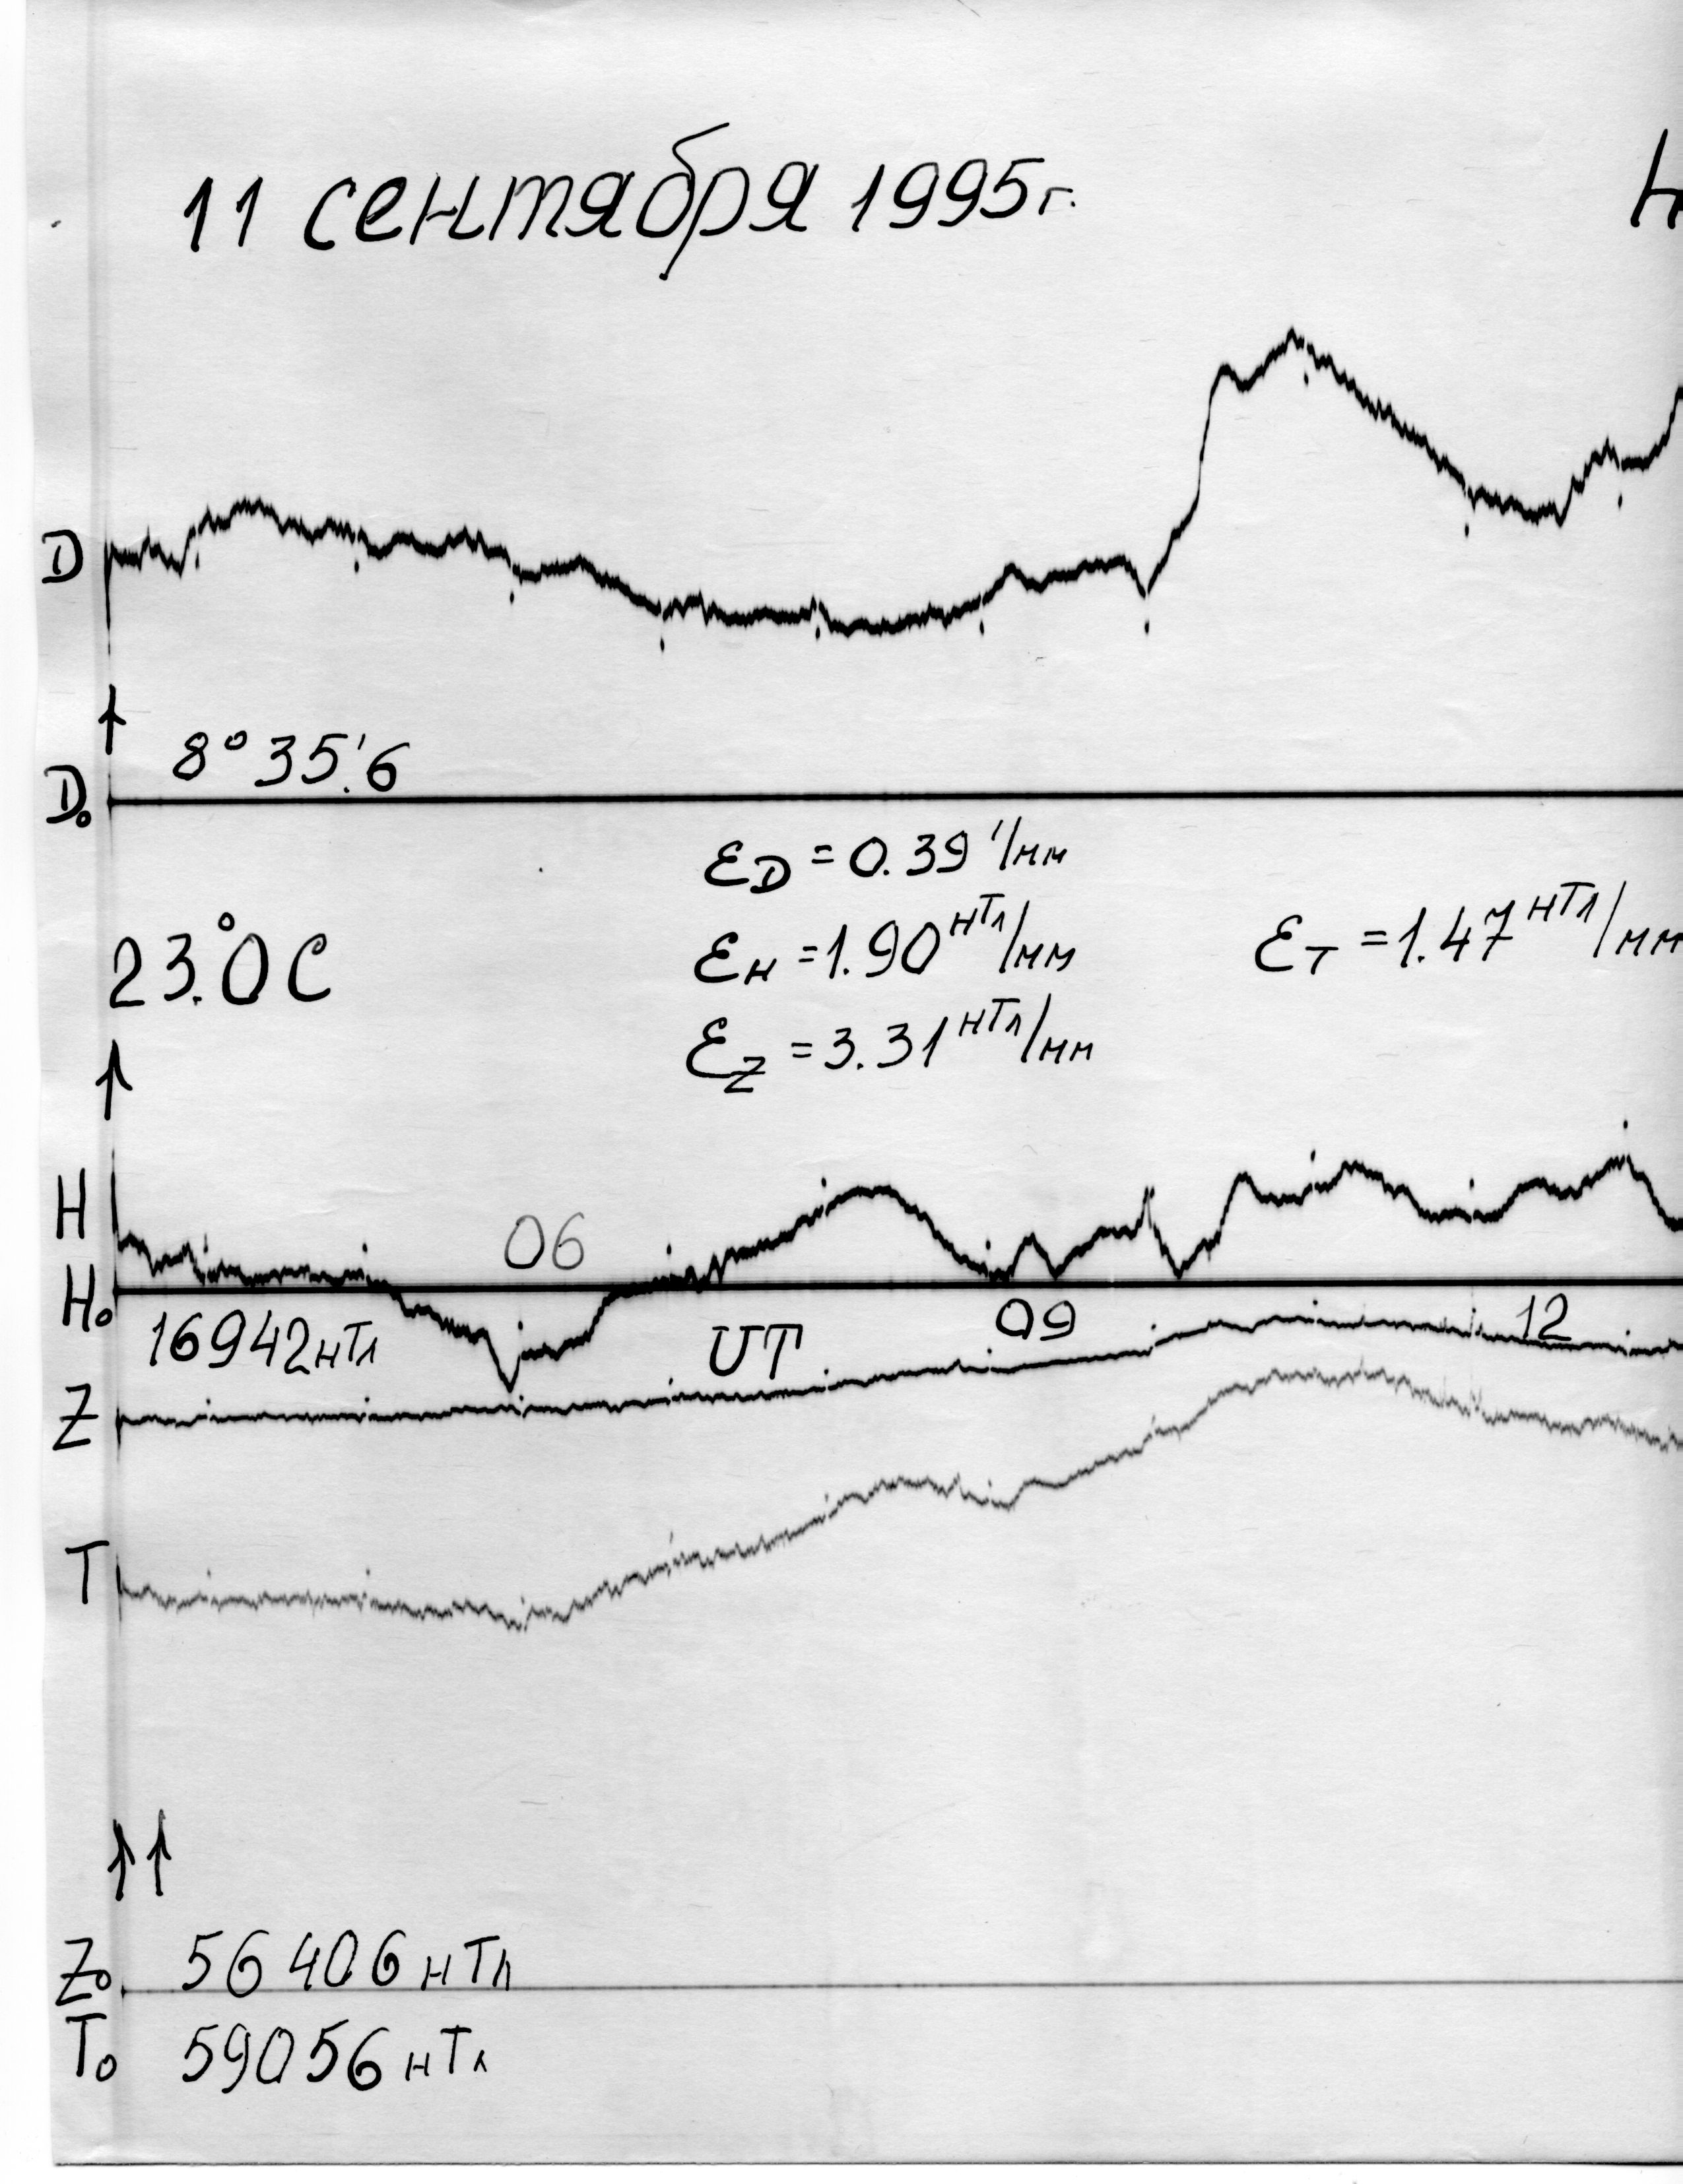 11 сентября 1995г.
D
8° 35.'6
D₀
εD = 0.39 '/мм
εH = 1.90 нТл/мм
εT = 1.47 нТл/мм
23.°0 C
εZ = 3.31 нТл/мм
H
06
H₀
16942 нТл
UT
09
12
Z
T
Z₀ 56406 нТл
T₀ 59056 нТл